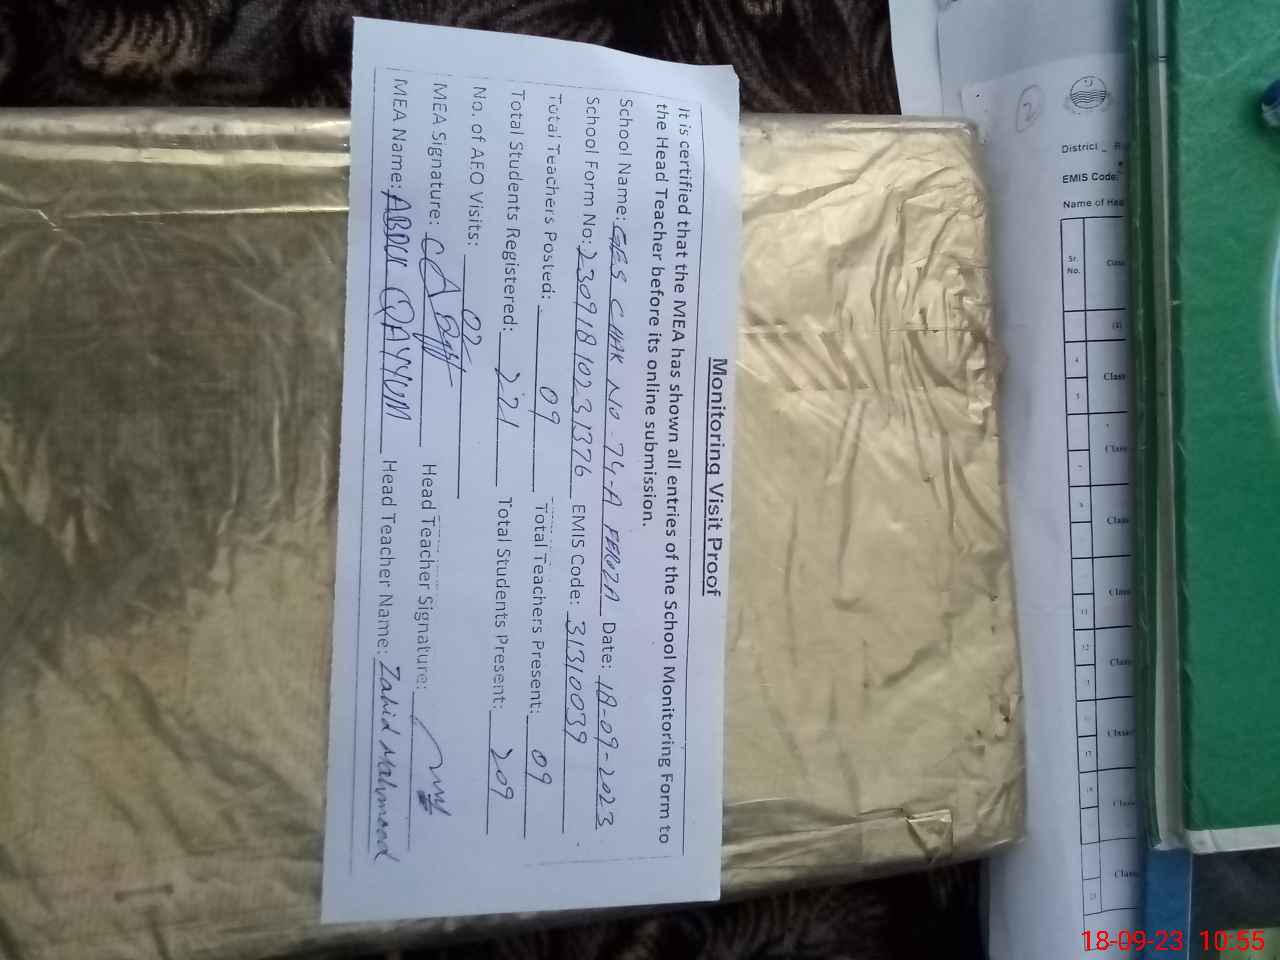 Monitoring Visit Proof
It is certified that the MEA has shown all entries of the School Monitoring Form to
the Head Teacher before its online submission.
School Name: GES CHAK NO-74-A FEROZA Date: 18-09-2023
School Form No: 23091810231376 EMIS Code: 31310039
Total Teachers Posted: 09 Total Teachers Present: 09
Total Students Registered: 221 Total Students Present: 209
No. of AEO Visits: 02
MEA Signature: Head Teacher Signature:
MEA Name: ABDUL QAYYUM Head Teacher Name: Zahid Mahmood
2
District
EMIS Code:
Name of Hea
Sr. No. Class
(1)
Class
Class
Class
Class
11
12
Class
Class
Class
Class
18-09-23 10:55